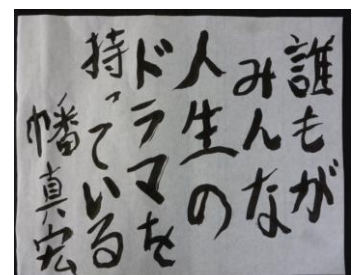 誰もが
みんな
人生の
ドラマを
持っている
幡真宏